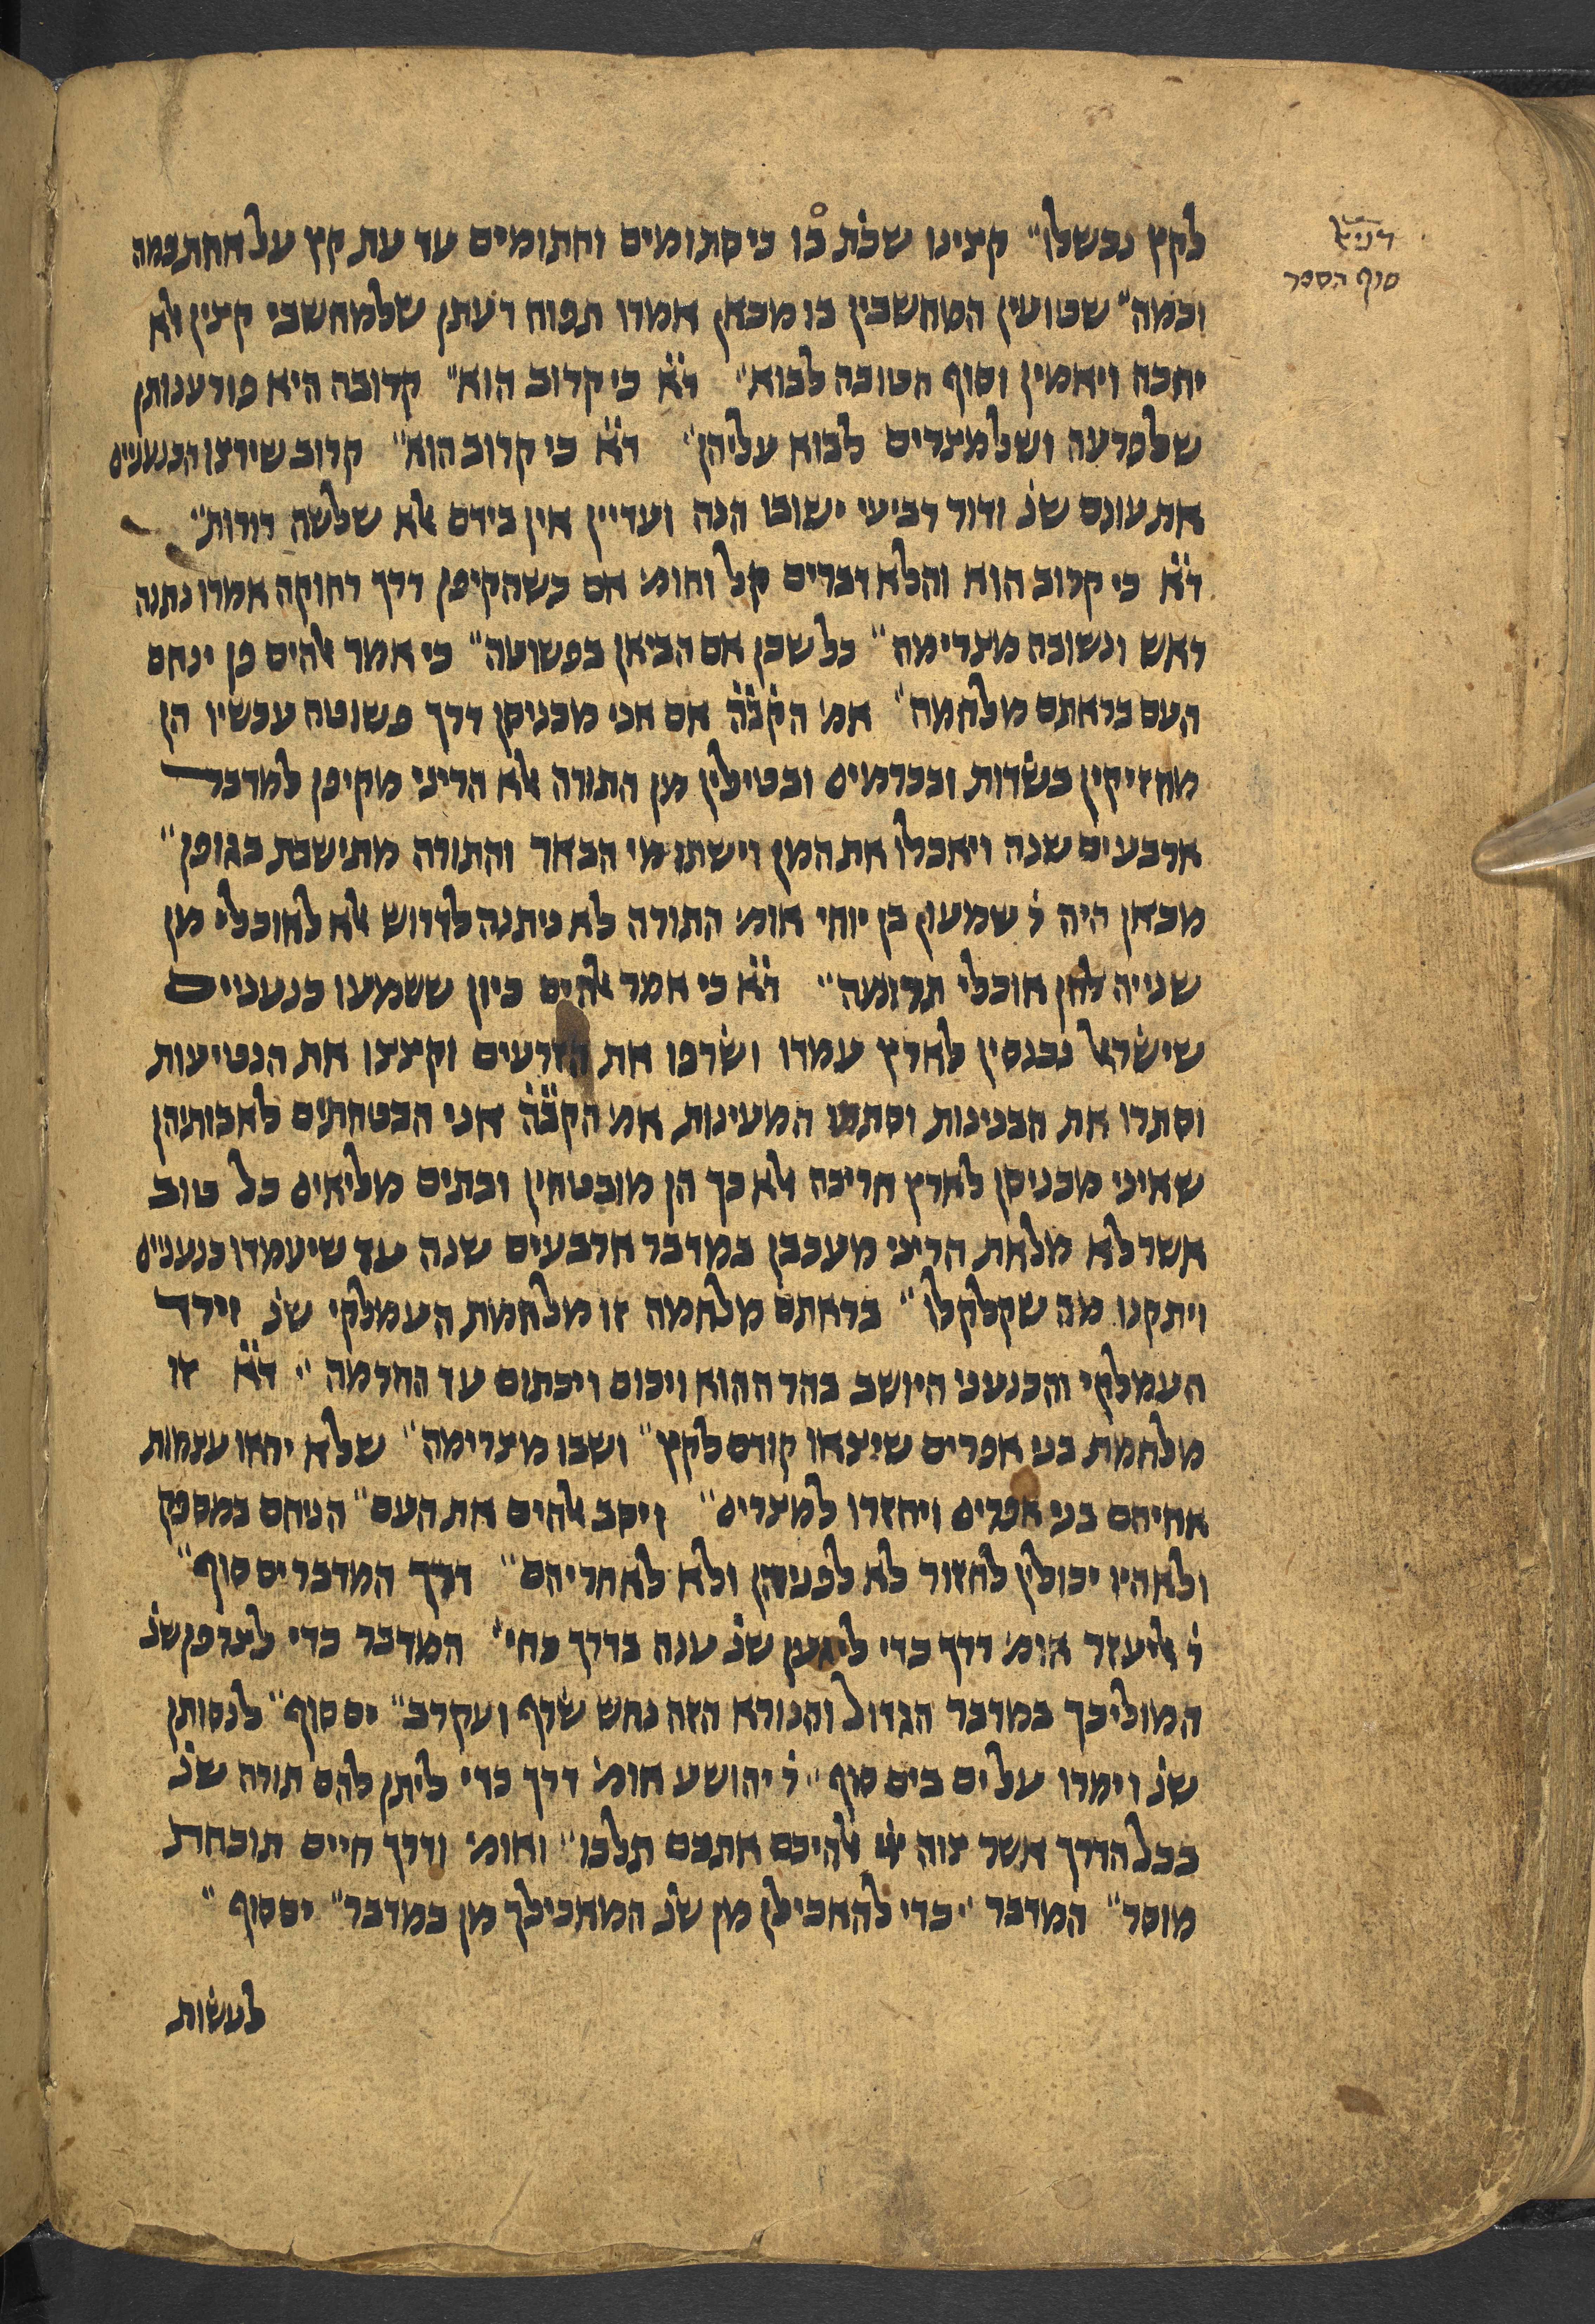 דניאל
סוף הספר
לקץ נכשלו״ קצינו שכֿת בֿו כי סתומים וחתומים עד עת קץ על אחת כמה
וכמה״ שטועין המחשבין בו מכאן אמרו תפוח דעתן שלמחשבי קיצין אלא
יחכה ויאמין וסוף הטובה לבוא״ דֿאֿ כי קרוב הוא״ קרובה היא פורענותן
שלפרעה ושלמצרים לבוא עליהן״ דֿאֿ כי קרוב הוא״ קרוב שירצו הכנעניים
את עונם שנֿ ודור רביעי ישובו הנה ועדיין אין בידם אלא שלשה דורות״
דֿאֿ כי קרוב הוא והלא דברים קל וחומ׳ אם כשהקיפן דרך רחוקה אמרו נתנה
ראש ונשובה מצרימה״ כל שכן אם הביאן בפשוטה״ כי אמר אלהים פן ינחם
העם בראתם מלחמה״ אמ׳ הקֿבֿהֿ אם אני מכניסן דרך פשוטה עכשיו הן
מחזיקין בשדות ובכרמים ובטילין מן התורה אלא הריני מקיפן למדבר
ארבעים שנה ויאכלו את המן וישתו מי הבאר והתורה מתישבת בגופן״
מכאן היה רֿ שמעון בן יוחי אומ׳ התורה לא ניתנה לדרוש אלא לאוכלי מן
שנייה להן אוכלי תרומה״ דֿאֿ כי אמר אלהים כיון ששמעו כנעניים
שישראל נכנסין לארץ עמדו ושרפו את הזרעים וקצצו את הנטיעות
וסתרו את הבנינות וסתמו המעינות אמ׳ הקֿבֿהֿ אני הבטחתים לאבותיהן
שאיני מכניסן לארץ חריבה אלא כך הן מובטחין ובתים מליאים כל טוב
אשר לא מלאת הריני מעכבן במדבר ארבעים שנה עד שיעמדו כנעניים
ויתקנו מה שקלקלו״ בראתם מלחמה זו מלחמת העמלקי שנֿ וירד
העמלקי והכנעני היושב בהר ההוא ויכום ויכתום עד החרמה״ דֿאֿ זו
מלחמת בני אפרים שיצאו קודם לקץ״ ושבו מצרימה״ שלא יראו עצמות
אחיהם בני אפרים ויחזרו למצרים״ ויסב אלהים את העם״ הניחם במספק
ולא היו יכולין לחזור לא לפניהן ולא לאחריהם״ דרך המדבר ים סוף״
רֿ אליעזר אומ׳ דרך כדי ליגען שנֿ ענה בדרך כחי״ המדבר כדי לצרפן שנֿ
המוליכך במדבר הגדול והנורא הזה נחש שרף ועקרב״ ים סוף״ לנסותן
שנֿ וימרו על ים בים סוף״ רֿ יהושע אומ׳ דרך כדי ליתן להם תורה שנֿ
בכל הדרך אשר צוה אלהיכם אתכם תלכו״ ואומ׳ ודרך חיים תוכחת
מוסר״ המדבר״ כדי להאכילן מן שנֿ המאכילך מן במדבר״ ים סוף״
לעשות